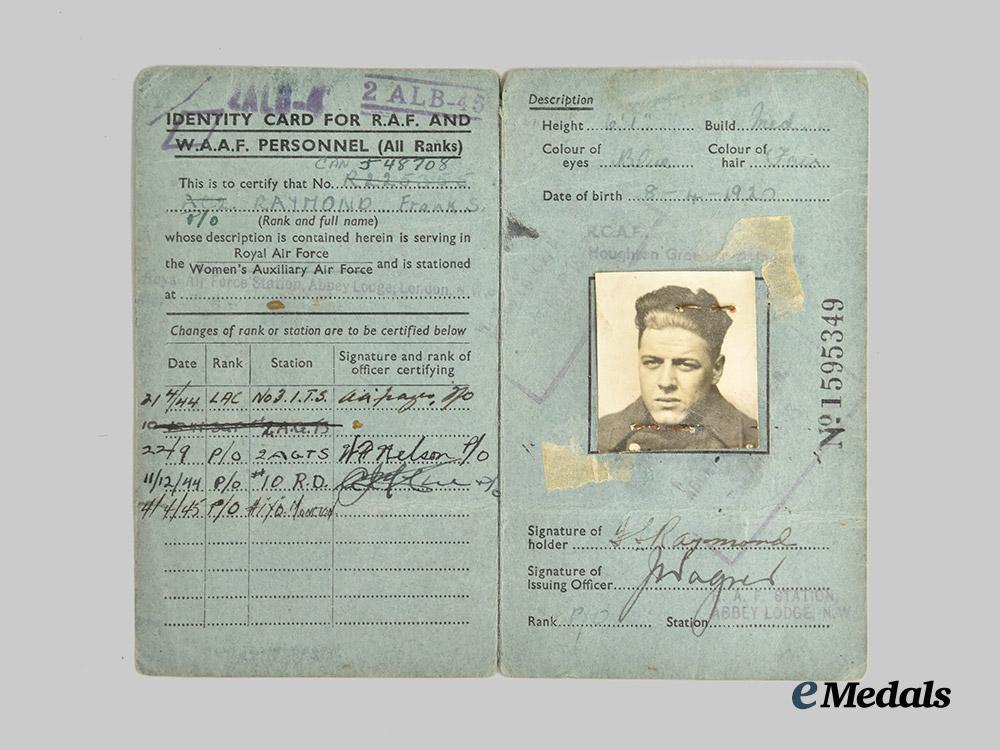 2 ALB-45
IDENTITY CARD FOR R.A.F. AND
W.A.A.F. PERSONNEL (All Ranks)
CAN J 48708
This is to certify that No.
RAYMOND Frank S.
P/O (Rank and full name)
whose description is contained herein is serving in
the Royal Air Force
Women's Auxiliary Air Force and is stationed
Royal Air Force Station, Abbey Lodge, London, N.W.
at
Changes of rank or station are to be certified below
Date Rank Station Signature and rank of officer certifying
21/4/44 LAC No 3. I.T.S.
2 A.G.T.S
22/9 P/O 2 AGTS Nelson P/O
11/12/44 P/O #10 R.D.
4/4/45 P/O
Description
Height 6'1" Build Med
Colour of eyes Blue Colour of hair
Date of birth 8-4-1920
R.C.A.F.
Houghton Green
No 1595349
Signature of holder F S Raymond
Signature of Issuing Officer
Rank P/O Station R.A.F. STATION,
ABBEY LODGE, N.W.
eMedals